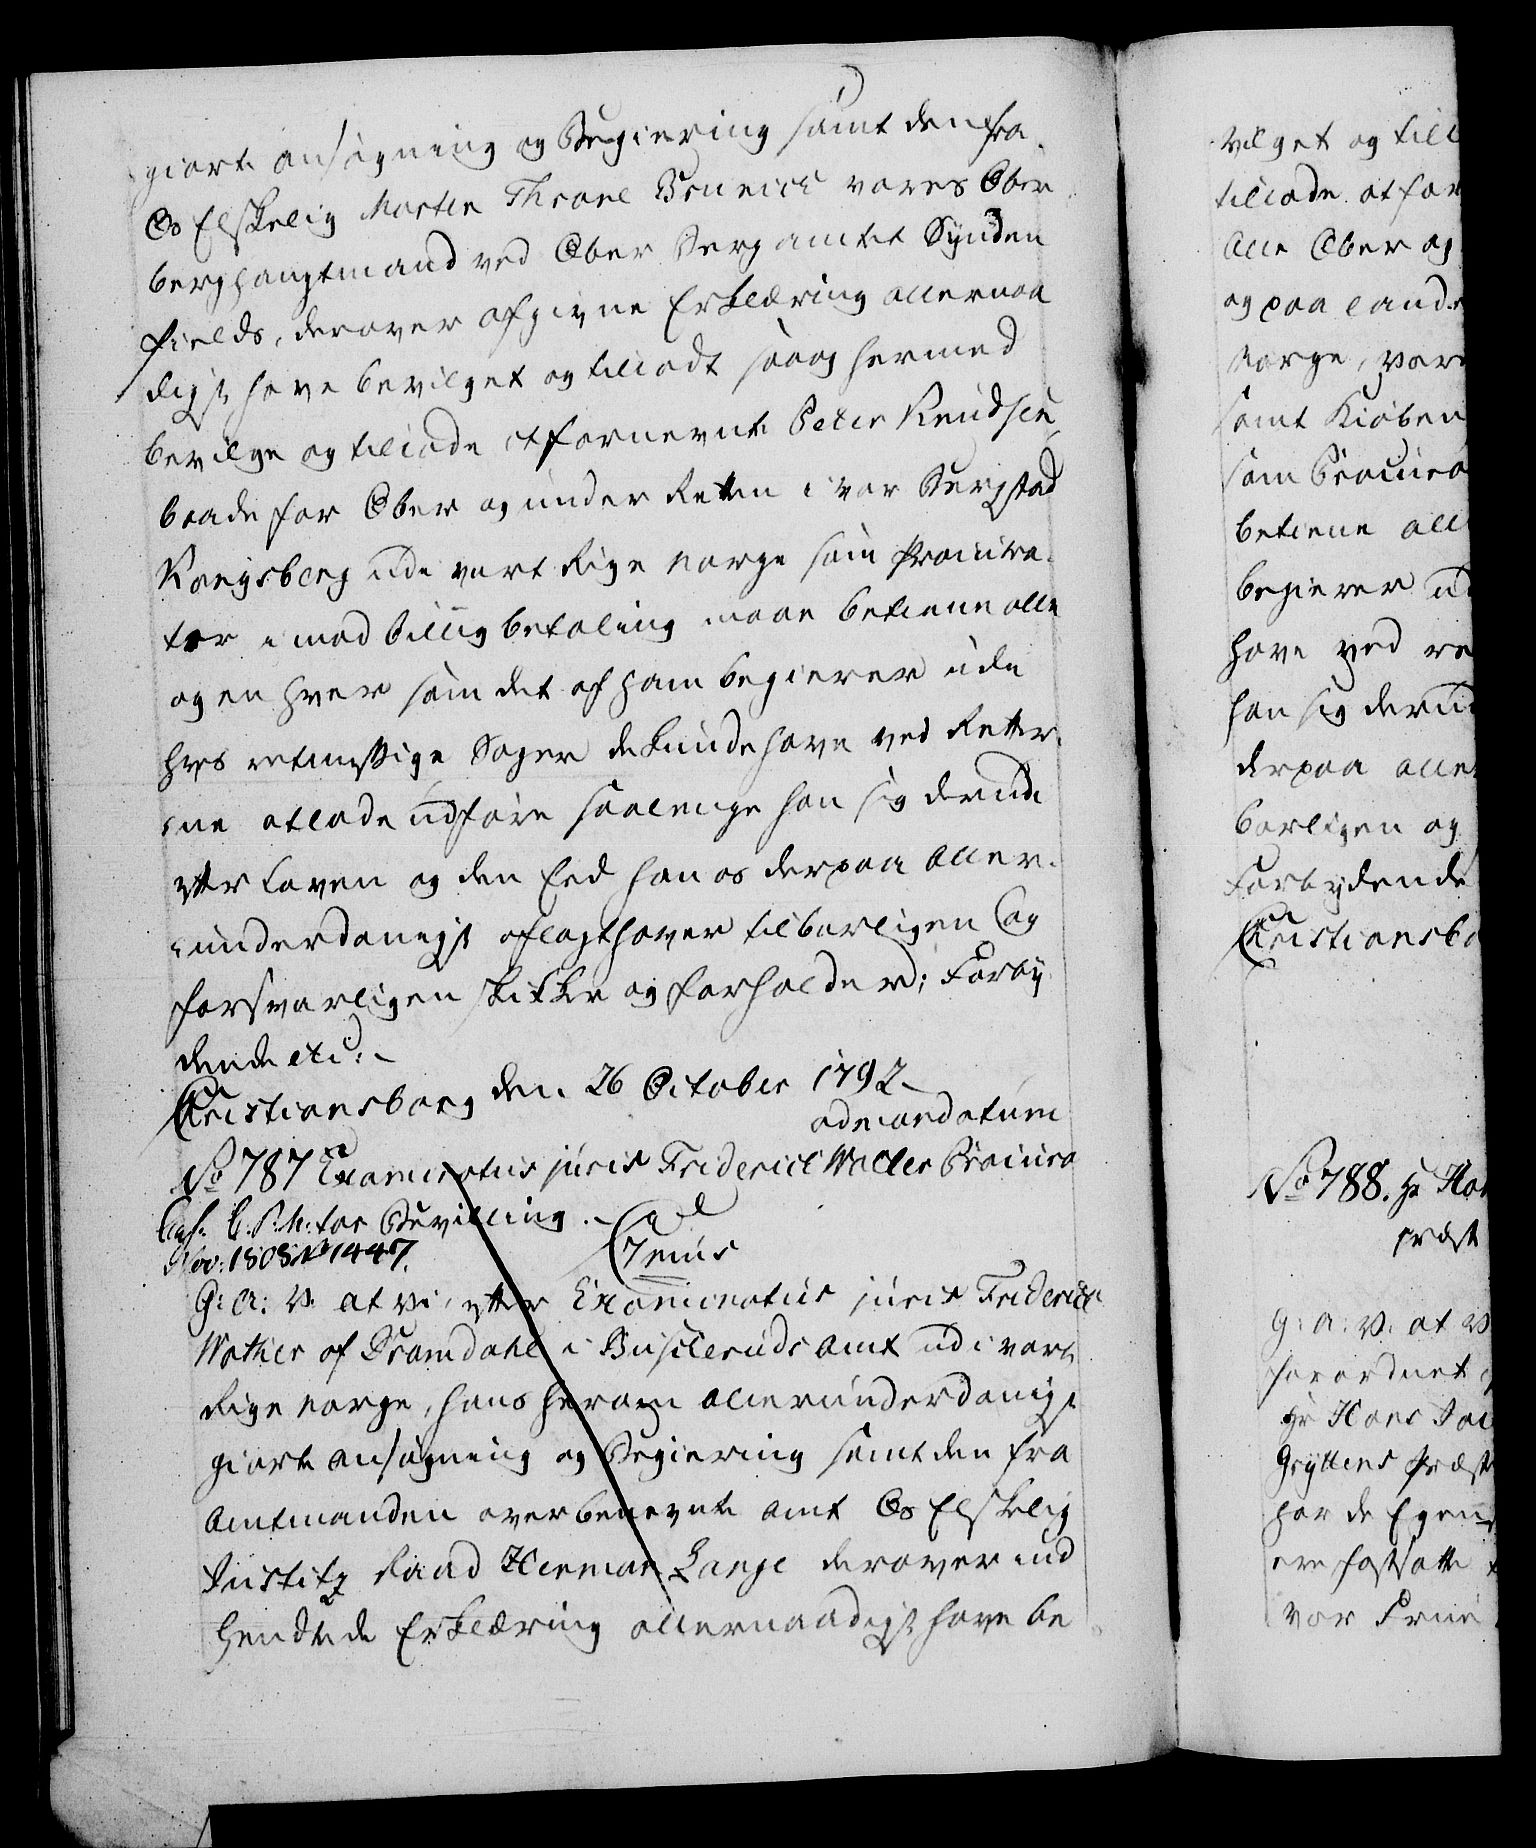 giorte ansøgning og Begiering samt den fra
Os Elskelig Morten Thrane Brünich vores Ober
berghauptmand ved Ober Berg amtet Synden
fields, derover afgivne Erklæring allernaa
digst have bevilget og tilladt saa og hermed
bevilge og tillade at fornevnte Peter Knudsen
baade for Ober og under Retten i vor Bergstad
Kongsberg udi vort Rige Norge som Procura
tor imod billig betaling maae betiene alle
og en hver som det af ham begierer udi
hves retmessige Sager de kunde have ved Retter
ne at lade udføre saalenge han sig derudi
efter Loven og den Eed han os derpaa aller
underdanigst aflagt haver tilbørligen og
forsvarligen skikker og forholder; Forby
dende etc:
Christiansborg den 26 October 1792
ad mandatum
No 787 Examinatus juris Friderich Walter Procura
tor Bevilling.
Nov: 1808 No 1447.
C 7mus
G: A: V. at Vi, efter Examinatus juris Friderich
Walter af Dramdahl i Buscheruds Amt udi vort
Rige Norge, hans herom allerunderdanigst
giorte ansøgning og Begiering samt den fra
Amtmanden over benevnte Amt Os Elskelig
Justitz Raad Herman Lange derover ind
hendtede Erklæring allernaadigst have be
vilget og till
tillade at for
Alle Ober og
og paa Lande
Norge, vor
samt Kiøben
som Procura
betiene alle
begierer ud
have ved re
han sig derud
derpaa aller
børligen og
Forbydende
Christiansbo
No 788. Hr Han
præst
G: A: V. at V
forordnet
Hr Hans Jac
Gryttens Præst
har de Egen
ere fastsatte
vor Frue